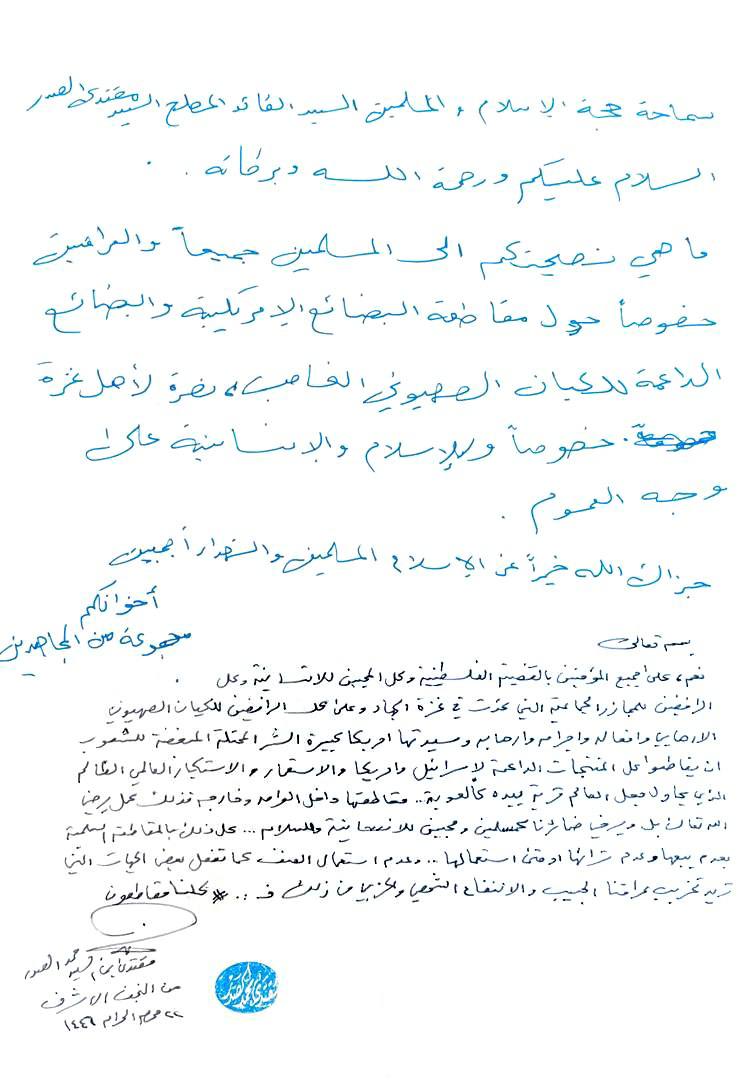 سماحة حجة الاسلام والمسلمين السيد القائد المصلح السيد مقتدى الصدر
السلام عليكم ورحمة الله وبركاته .
ما هي نصيحتكم الى المسلمين جميعاً والعراقيين
خصوصاً حول مقاطعة البضائع الامريكية والبضائع
الداعمة للكيان الصهيوني الغاصب ، نصرة لأهل غزة
خصوصاً وللإسلام والانسانية على
وجه العموم .
جزاك الله خيراً عن الإسلام المسلمين والشهداء أجمعين
أخوانكم
مجموعة من المجاهدين
بسمه تعالى
نعم، على جميع المؤمنين بالقضية الفلسطينية وكل المحبين للانسانية وكل
الرافضين للمجازر الجماعية التي حدثت في غزة الجهاد وعلى كل الرافضين للكيان الصهيوني
الارهابي وافعاله واجرامه وارهابه وسيدتها امريكا كبيرة الشر المحتلة المبغضة للشعوب
ان يقاطعوا كل المنتجات الداعمة لإسرائيل وامريكا والاستعمار والاستكبار العالمي الظالم
الذي يحاول جعل العالم قرية بيده كألعوبة .. مقاطعتها داخل العراق وخارجه فذلك عمل يرضي
الله تعالى بل ويرضي ضمائرنا كمسلمين ومحبين للانسانية وللسلام ... كل ذلك بالمقاطعة السلمية
بعدم بيعها وعدم شرائها او حتى استعمالها .. وعدم استعمال العنف كما تفعل بعض الجهات التي
تريد تخريب عراقنا الحبيب والانتفاع الشخصي والحزبي من ذلك فـ .. # كلنا مقاطعون
مقتدى ابن السيد محمد الصدر
من النجف الاشرف
٢٢ محرم الحرام ١٤٤٦
مقتدى محمد الصدر